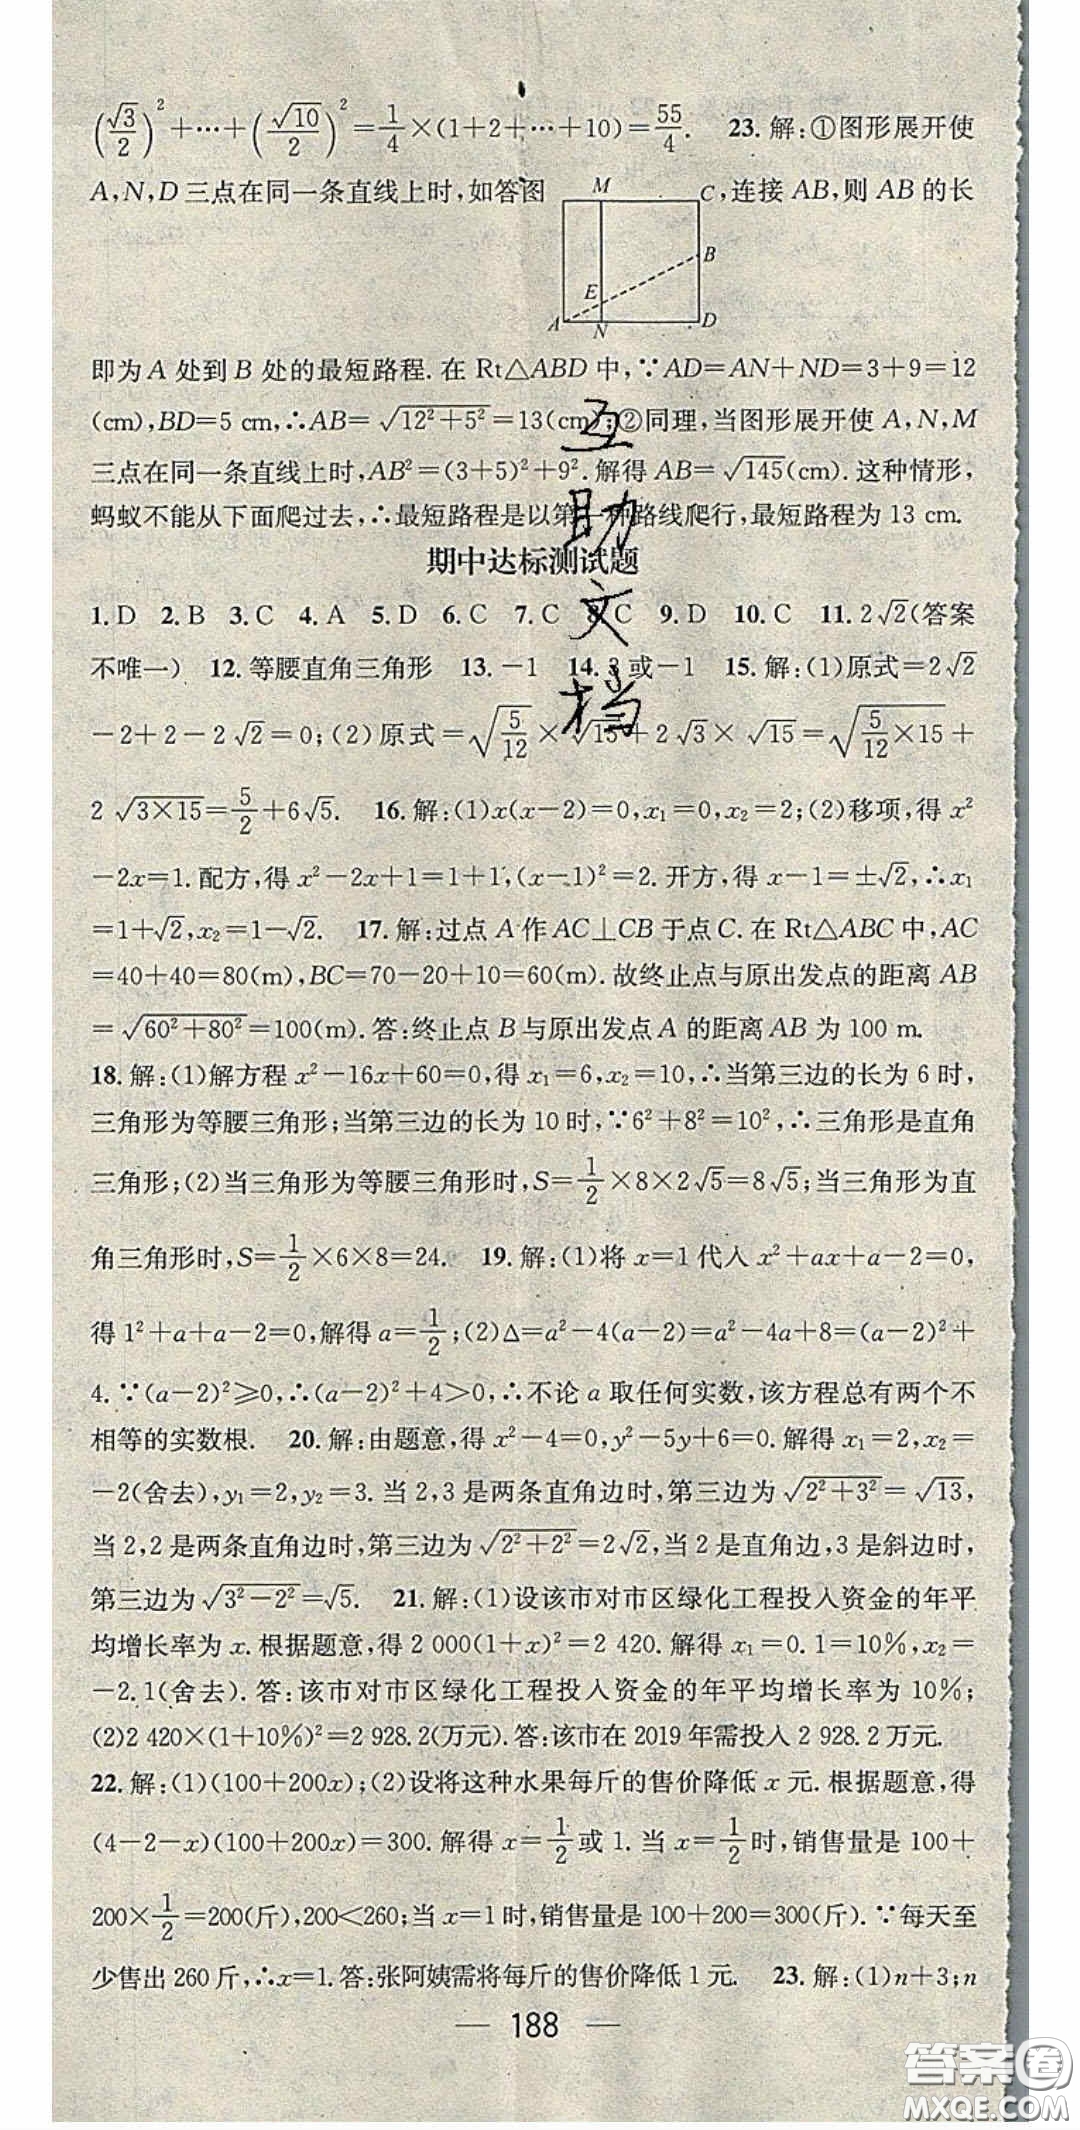 (√3/2)²+⋯+(√10/2)²=1/4×(1+2+⋯+10)=55/4. 23. 解:①图形展开使
A,N,D 三点在同一条直线上时,如答图
M
C
,连接 AB,则 AB 的长
B
E
A
N
D
即为 A 处到 B 处的最短路程. 在 Rt△ABD 中,∵AD=AN+ND=3+9=12
(cm),BD=5 cm,∴AB=√(12²+5²)=13(cm);②同理,当图形展开使 A,N,M
三点在同一条直线上时,AB²=(3+5)²+9². 解得 AB=√145(cm). 这种情形,
蚂蚁不能从下面爬过去,∴最短路程是以第一种路线爬行,最短路程为 13 cm.
期中达标测试题
1. D 2. B 3. C 4. A 5. D 6. C 7. C 8. C 9. D 10. C 11. 2√2(答案
不唯一) 12. 等腰直角三角形 13. －1 14. 3 或－1 15. 解:(1)原式=2√2
－2+2－2√2=0;(2)原式=√(5/12)×√15+2√3×√15=√(5/12×15)+
2√(3×15)=5/2+6√5. 16. 解:(1)x(x－2)=0,x₁=0,x₂=2;(2)移项,得 x²
－2x=1. 配方,得 x²－2x+1=1+1,(x－1)²=2. 开方,得 x－1=±√2,∴x₁
=1+√2,x₂=1－√2. 17. 解:过点 A 作 AC⊥CB 于点 C. 在 Rt△ABC 中,AC
=40+40=80(m),BC=70－20+10=60(m). 故终止点与原出发点的距离 AB
=√(60²+80²)=100(m). 答:终止点 B 与原出发点 A 的距离 AB 为 100 m.
18. 解:(1)解方程 x²－16x+60=0,得 x₁=6,x₂=10,∴当第三边的长为 6 时,
三角形为等腰三角形;当第三边的长为 10 时,∵6²+8²=10²,∴三角形是直角
三角形;(2)当三角形为等腰三角形时,S=1/2×8×2√5=8√5;当三角形为直
角三角形时,S=1/2×6×8=24. 19. 解:(1)将 x=1 代入 x²+ax+a－2=0,
得 1²+a+a－2=0,解得 a=1/2;(2)Δ=a²－4(a－2)=a²－4a+8=(a－2)²+
4. ∵(a－2)²⩾0,∴(a－2)²+4>0,∴不论 a 取任何实数,该方程总有两个不
相等的实数根. 20. 解:由题意,得 x²－4=0,y²－5y+6=0. 解得 x₁=2,x₂=
－2(舍去),y₁=2,y₂=3. 当 2,3 是两条直角边时,第三边为√(2²+3²)=√13,
当 2,2 是两条直角边时,第三边为√(2²+2²)=2√2,当 2 是直角边,3 是斜边时,
第三边为√(3²－2²)=√5. 21. 解:(1)设该市对市区绿化工程投入资金的年平
均增长率为 x. 根据题意,得 2 000(1+x)²=2 420. 解得 x₁=0. 1=10%,x₂=
－2. 1(舍去). 答:该市对市区绿化工程投入资金的年平均增长率为 10%;
(2)2 420×(1+10%)²=2 928. 2(万元). 答:该市在 2019 年需投入 2 928. 2 万元.
22. 解:(1)(100+200x);(2)设将这种水果每斤的售价降低 x 元. 根据题意,得
(4－2－x)(100+200x)=300. 解得 x=1/2或 1. 当 x=1/2时,销售量是 100+
200×1/2=200(斤),200<260;当 x=1 时,销售量是 100+200=300(斤). ∵每天至
少售出 260 斤,∴x=1. 答:张阿姨需将每斤的售价降低 1 元. 23. 解:(1)n+3;n
— 188 —
互
助
文
档
答案圈
MXQE.COM